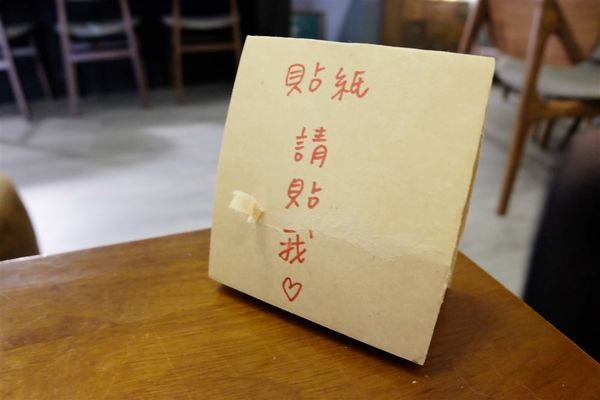 貼紙
請貼我♡